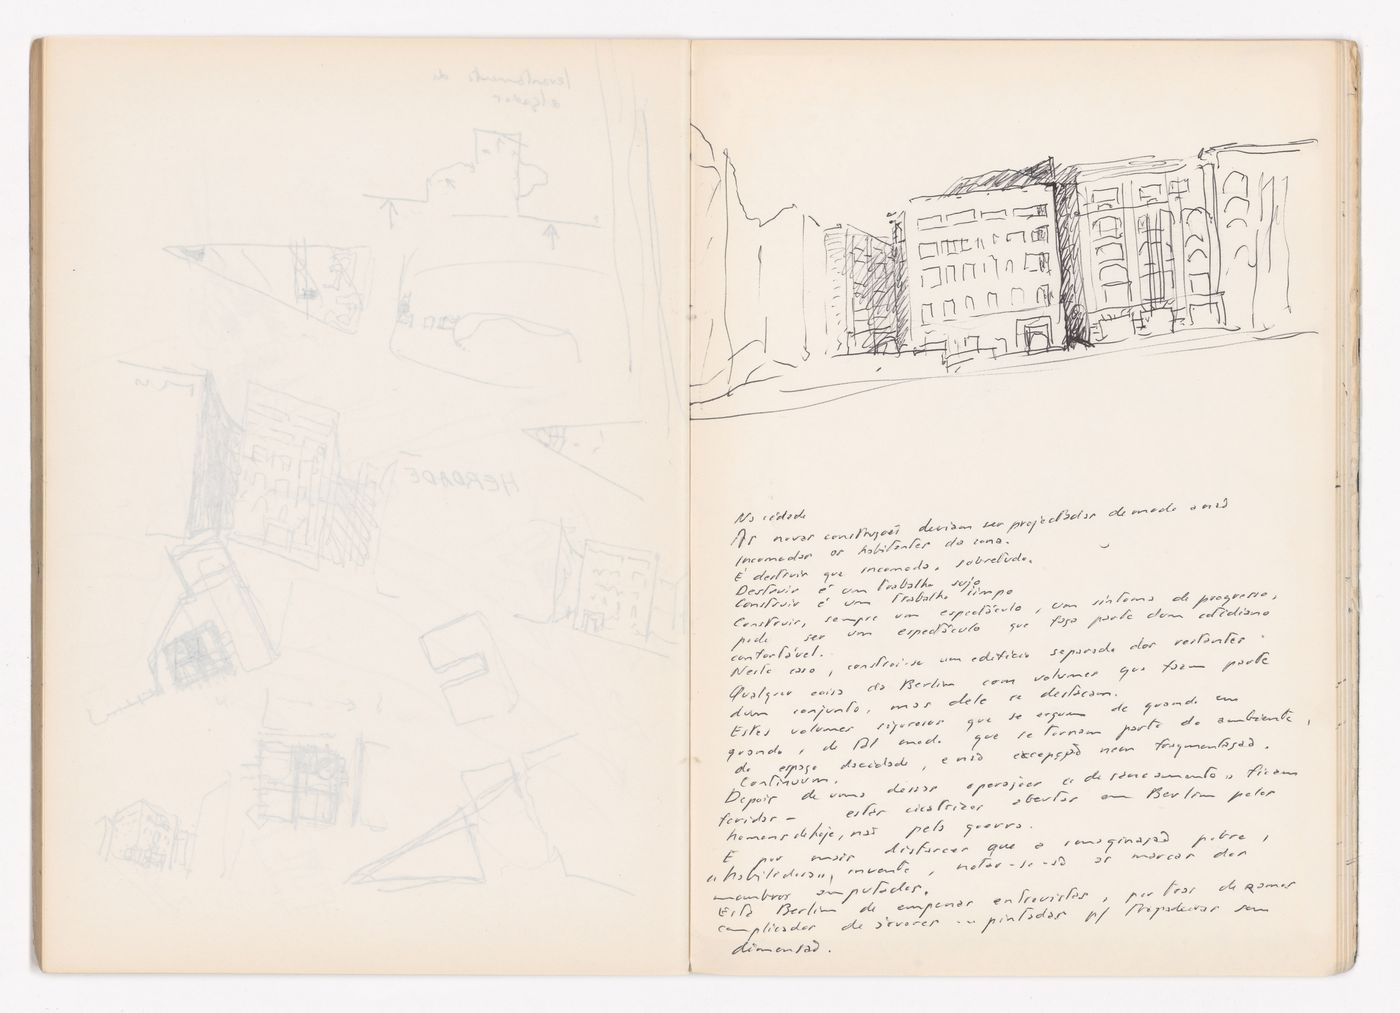 Na cidade
As novas construções deviam ser projectadas de modo a não
incomodar os habitantes da zona.
É destruir que incomoda, sobretudo.
Destruir é um trabalho sujo
Construir é um trabalho limpo
Construir, sempre um espectáculo, um sintoma de progresso,
pode ser um espectáculo que faça parte dum cotidiano
confortável.
Neste caso, constroi-se um edifício separado dos restantes.
Qualquer coisa de Berlim com volumes que fazem parte
dum conjunto, mas dele se destacam.
Estes volumes rigorosos que se erguem de quando em
quando, de tal modo que se tornam parte do ambiente,
do espaço decidido, e não excepção nem fragmentação.
Continuum.
Depois de uma dessas operações « de saneamento » ficam
feridas – estas cicatrizes abertas em Berlim pelos
homens de hoje, não pela guerra.
E por mais disfarces que a imaginação pobre,
« habilidosa », invente, notar-se-ão as marcas dos
membros amputados.
Esta Berlim de empenas entrevistas, por trás de ramos
complicados de árvores – pintadas p/ trepadeiras sem
dimensão.
levantamento de
alçados
HERDADE